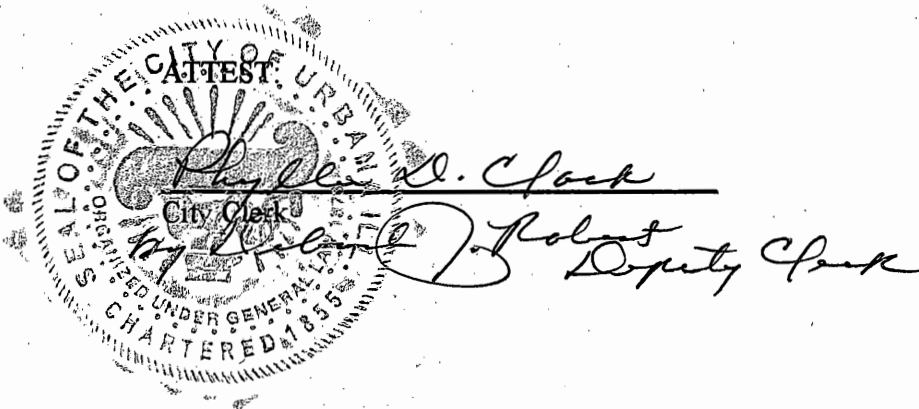 SEAL OF THE CITY OF URBANA, IL
ORGANIZED UNDER GENERAL LAW
CHARTERED 1855
ATTEST:
Phyllis D. Clark
City Clerk
by Debra J. Roberts
Deputy Clerk